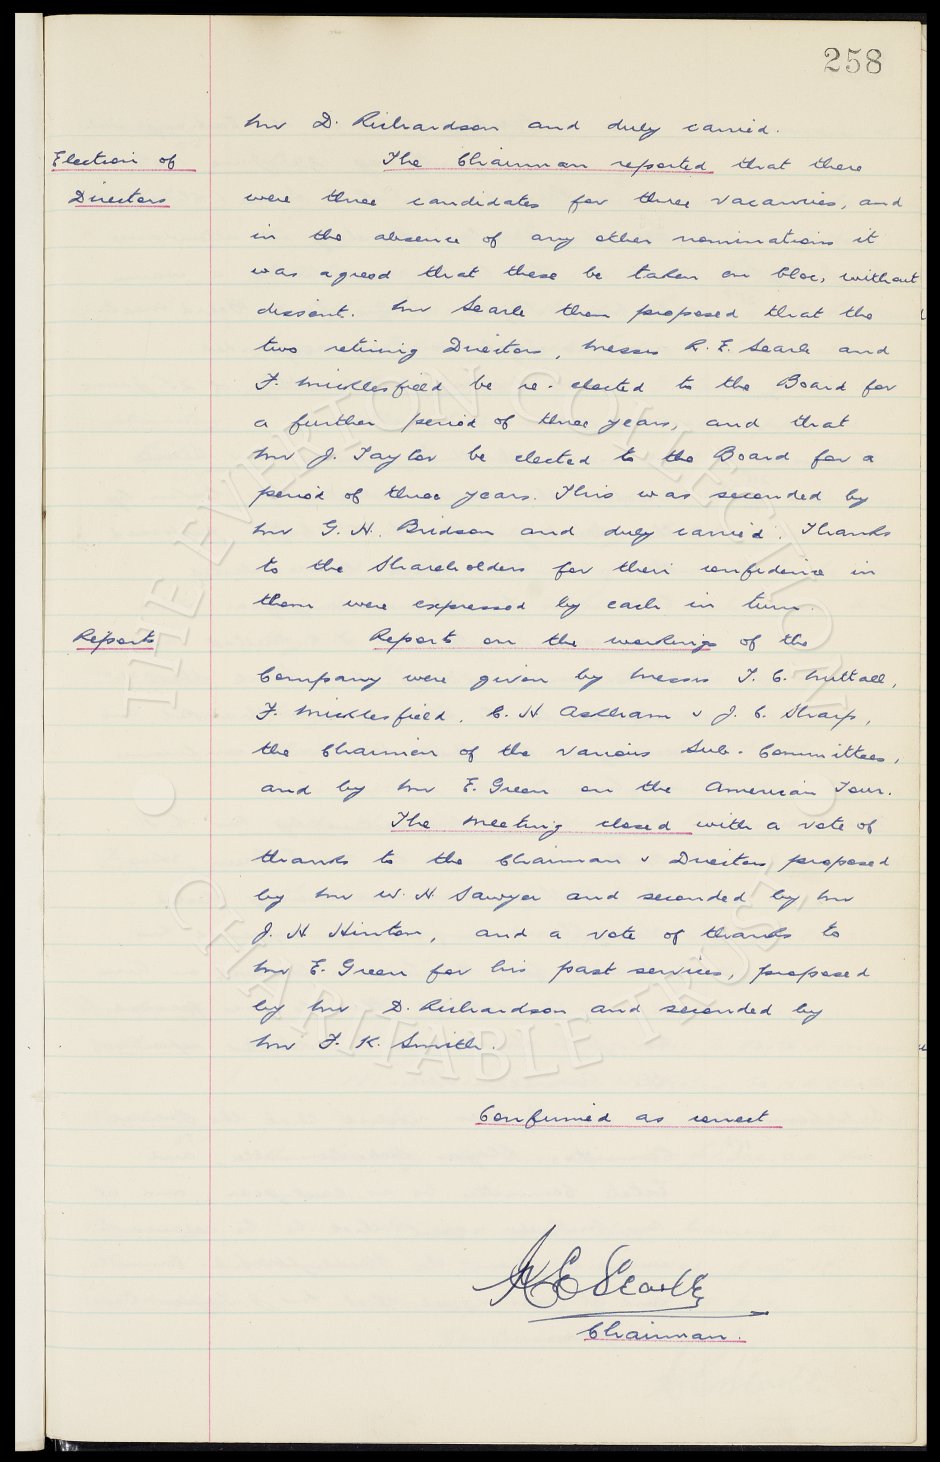 258
Mr D. Richardson and duly carried.
Election of The Chairman reported that there
Directors were three candidates for three vacancies, and
in the absence of any other nominations it
was agreed that these be taken en bloc, without
dissent. Mr Searle then proposed that the
two retiring Directors, Messrs R. E. Searle and
F. Micklesfield be re-elected to the Board for
a further period of three years, and that
Mr J. Taylor be elected to the Board for a
period of three years. This was seconded by
Mr G. H. Bridson and duly carried. Thanks
to the Shareholders for their confidence in
them were expressed by each in turn.
Reports Reports on the workings of the
Company were given by Messrs T. C. Nuttall,
F. Micklesfield, C. H. Askham & J. C. Sharp,
the Chairmen of the various Sub-Committees,
and by Mr E. Green on the American Tour.
The meeting closed with a vote of
thanks to the Chairman & Directors proposed
by Mr W. H. Sawyer and seconded by Mr
J. H. Hinton, and a vote of thanks to
Mr E. Green for his past services, proposed
by Mr D. Richardson and seconded by
Mr F. K. Smith.
Confirmed as correct
R E Searle
Chairman.
THE EVERTON COLLECTION
CHARITABLE TRUST